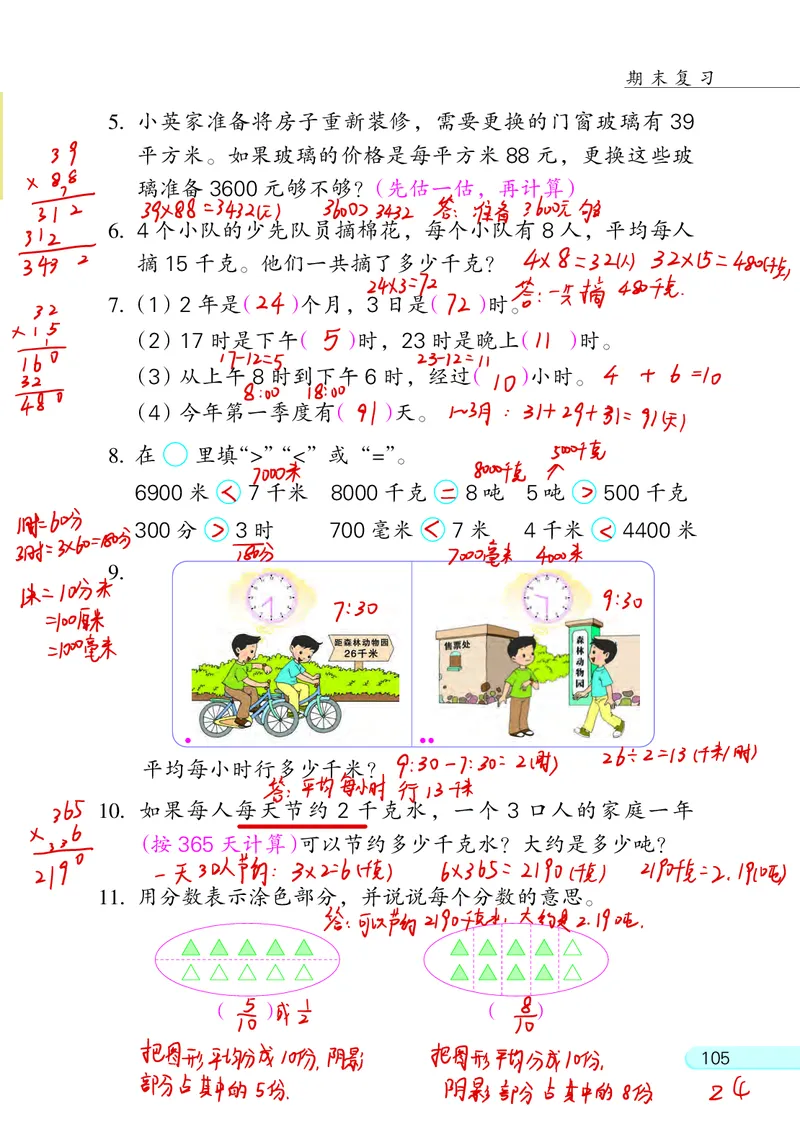 期末复习
5. 小英家准备将房子重新装修，需要更换的门窗玻璃有 39
平方米。如果玻璃的价格是每平方米 88 元，更换这些玻
璃准备 3600 元够不够？(先估一估，再计算)
39
× 88
7
312
312
3432
39×88=3432(元) 3600>3432 答：准备3600元够
6. 4 个小队的少先队员摘棉花，每个小队有 8 人，平均每人
摘 15 千克。他们一共摘了多少千克？ 4×8=32(人) 32×15=480(千克)
24×3=72 答：一共摘 480千克.
7. (1) 2 年是( 24 )个月，3 日是( 72 )时。
(2) 17 时是下午( 5 )时，23 时是晚上( 11 )时。
17-12=5 23-12=11
(3) 从上午 8 时到下午 6 时，经过( 10 )小时。 4 + 6 =10
8:00 18:00
(4) 今年第一季度有( 91 )天。 1~3月：31+29+31=91(天)
32
×15
1
160
32
480
8. 在 ○ 里填“>”“<”或“=”。
7000米 8000千克 5000千克
6900 米 < 7 千米 8000 千克 = 8 吨 5 吨 > 500 千克
300 分 > 3 时 700 毫米 < 7 米 4 千米 < 4400 米
180分 7000毫米 4000米
1时=60分
3时=3×60=180分
1米=10分米
=100厘米
=1000毫米
9.
7:30
距森林动物园
26千米
9:30
售票处
森林动物园
平均每小时行多少千米？ 9:30-7:30=2(时) 26÷2=13(千米/时)
答：平均每小时行13千米
10. 如果每人每天节约 2 千克水，一个 3 口人的家庭一年
(按 365 天计算)可以节约多少千克水？大约是多少吨？
365
× 6
33
2190
一天3口人节约：3×2=6(千克) 6×365=2190(千克) 2190千克=2.19(吨)
11. 用分数表示涂色部分，并说说每个分数的意思。
答：可以节约2190千克水，大约是2.19吨.
( 5/10 )或 1/2 ( 8/10 )
把图形平均分成10份，阴影
部分占其中的5份.
把图形平均分成10份，
阴影部分占其中的8份
105
24